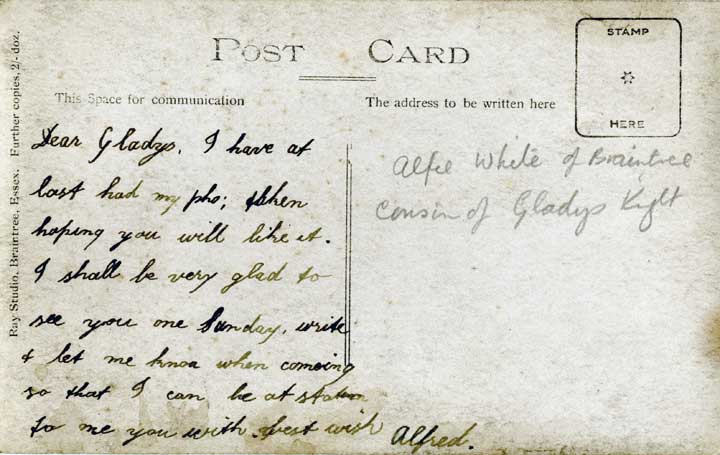 POST CARD
STAMP
HERE
This Space for communication
The address to be written here
Ray Studio, Braintree, Essex. Further copies, 2/- doz.
Dear Gladys. I have at
last had my pho; taken
hoping you will like it.
I shall be very glad to
see you one Sunday, write
& let me know when comeing
so that I can be at station
to me you with best wish
Alfred.
Alfee White of Braintree
Cousin of Gladys